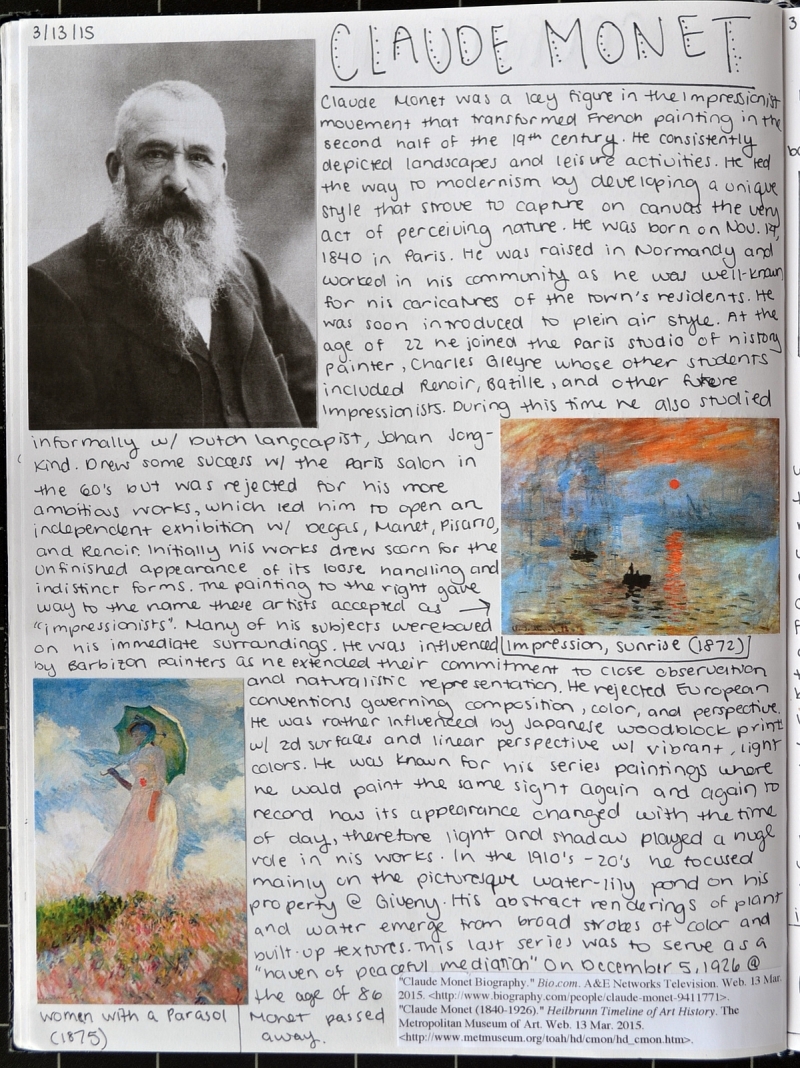 3/13/15
CLAUDE MONET
Claude Monet was a key figure in the Impressionist
movement that transformed French painting in the
second half of the 19th century. He consistently
depicted landscapes and leisure activities. He led
the way to modernism by developing a unique
style that strove to capture on canvas the very
act of perceiving nature. He was born on Nov. 14,
1840 in Paris. He was raised in Normandy and
worked in his community as he was well-known
for his caricatures of the town's residents. He
was soon introduced to plein air style. At the
age of 22 he joined the Paris studio of history
painter, Charles Gleyre whose other students
included Renoir, Bazille, and other future
Impressionists. During this time he also studied
informally w/ Dutch lanscapist, Johan Jong-
kind. Drew some success w/ the Paris salon in
the 60's but was rejected for his more
ambitious works, which led him to open an
independent exhibition w/ Degas, Manet, Pisarro,
and Renoir. Initially his works drew scorn for the
unfinished appearance of its loose handling and
indistinct forms. The painting to the right gave
way to the name these artists accepted as →
"impressionists". Many of his subjects were based
on his immediate surroundings. He was influenced
Impression, sunrise (1872)
by Barbizon painters as he extended their commitment to close observation
and naturalistic representation. He rejected European
conventions governing composition, color, and perspective.
He was rather influenced by Japanese woodblock print
w/ 2d surfaces and linear perspective w/ vibrant, light
colors. He was known for his series paintings where
he would paint the same sight again and again to
record how its appearance changed with the time
of day, therefore light and shadow played a huge
role in his works. In the 1910's -20's he focused
mainly on the picturesque water-lily pond on his
property @ Giveny. His abstract renderings of plant
and water emerge from broad strokes of color and
built-up textures. This last series was to serve as a
"haven of peaceful mediation" On December 5, 1926 @
the age of 86
Monet passed
away.
women with a Parasol
(1875)
"Claude Monet Biography." Bio.com. A&E Networks Television. Web. 13 Mar.
2015. <http://www.biography.com/people/claude-monet-9411771>.
"Claude Monet (1840-1926)." Heilbrunn Timeline of Art History. The
Metropolitan Museum of Art. Web. 13 Mar. 2015.
<http://www.metmuseum.org/toah/hd/cmon/hd_cmon.htm>.